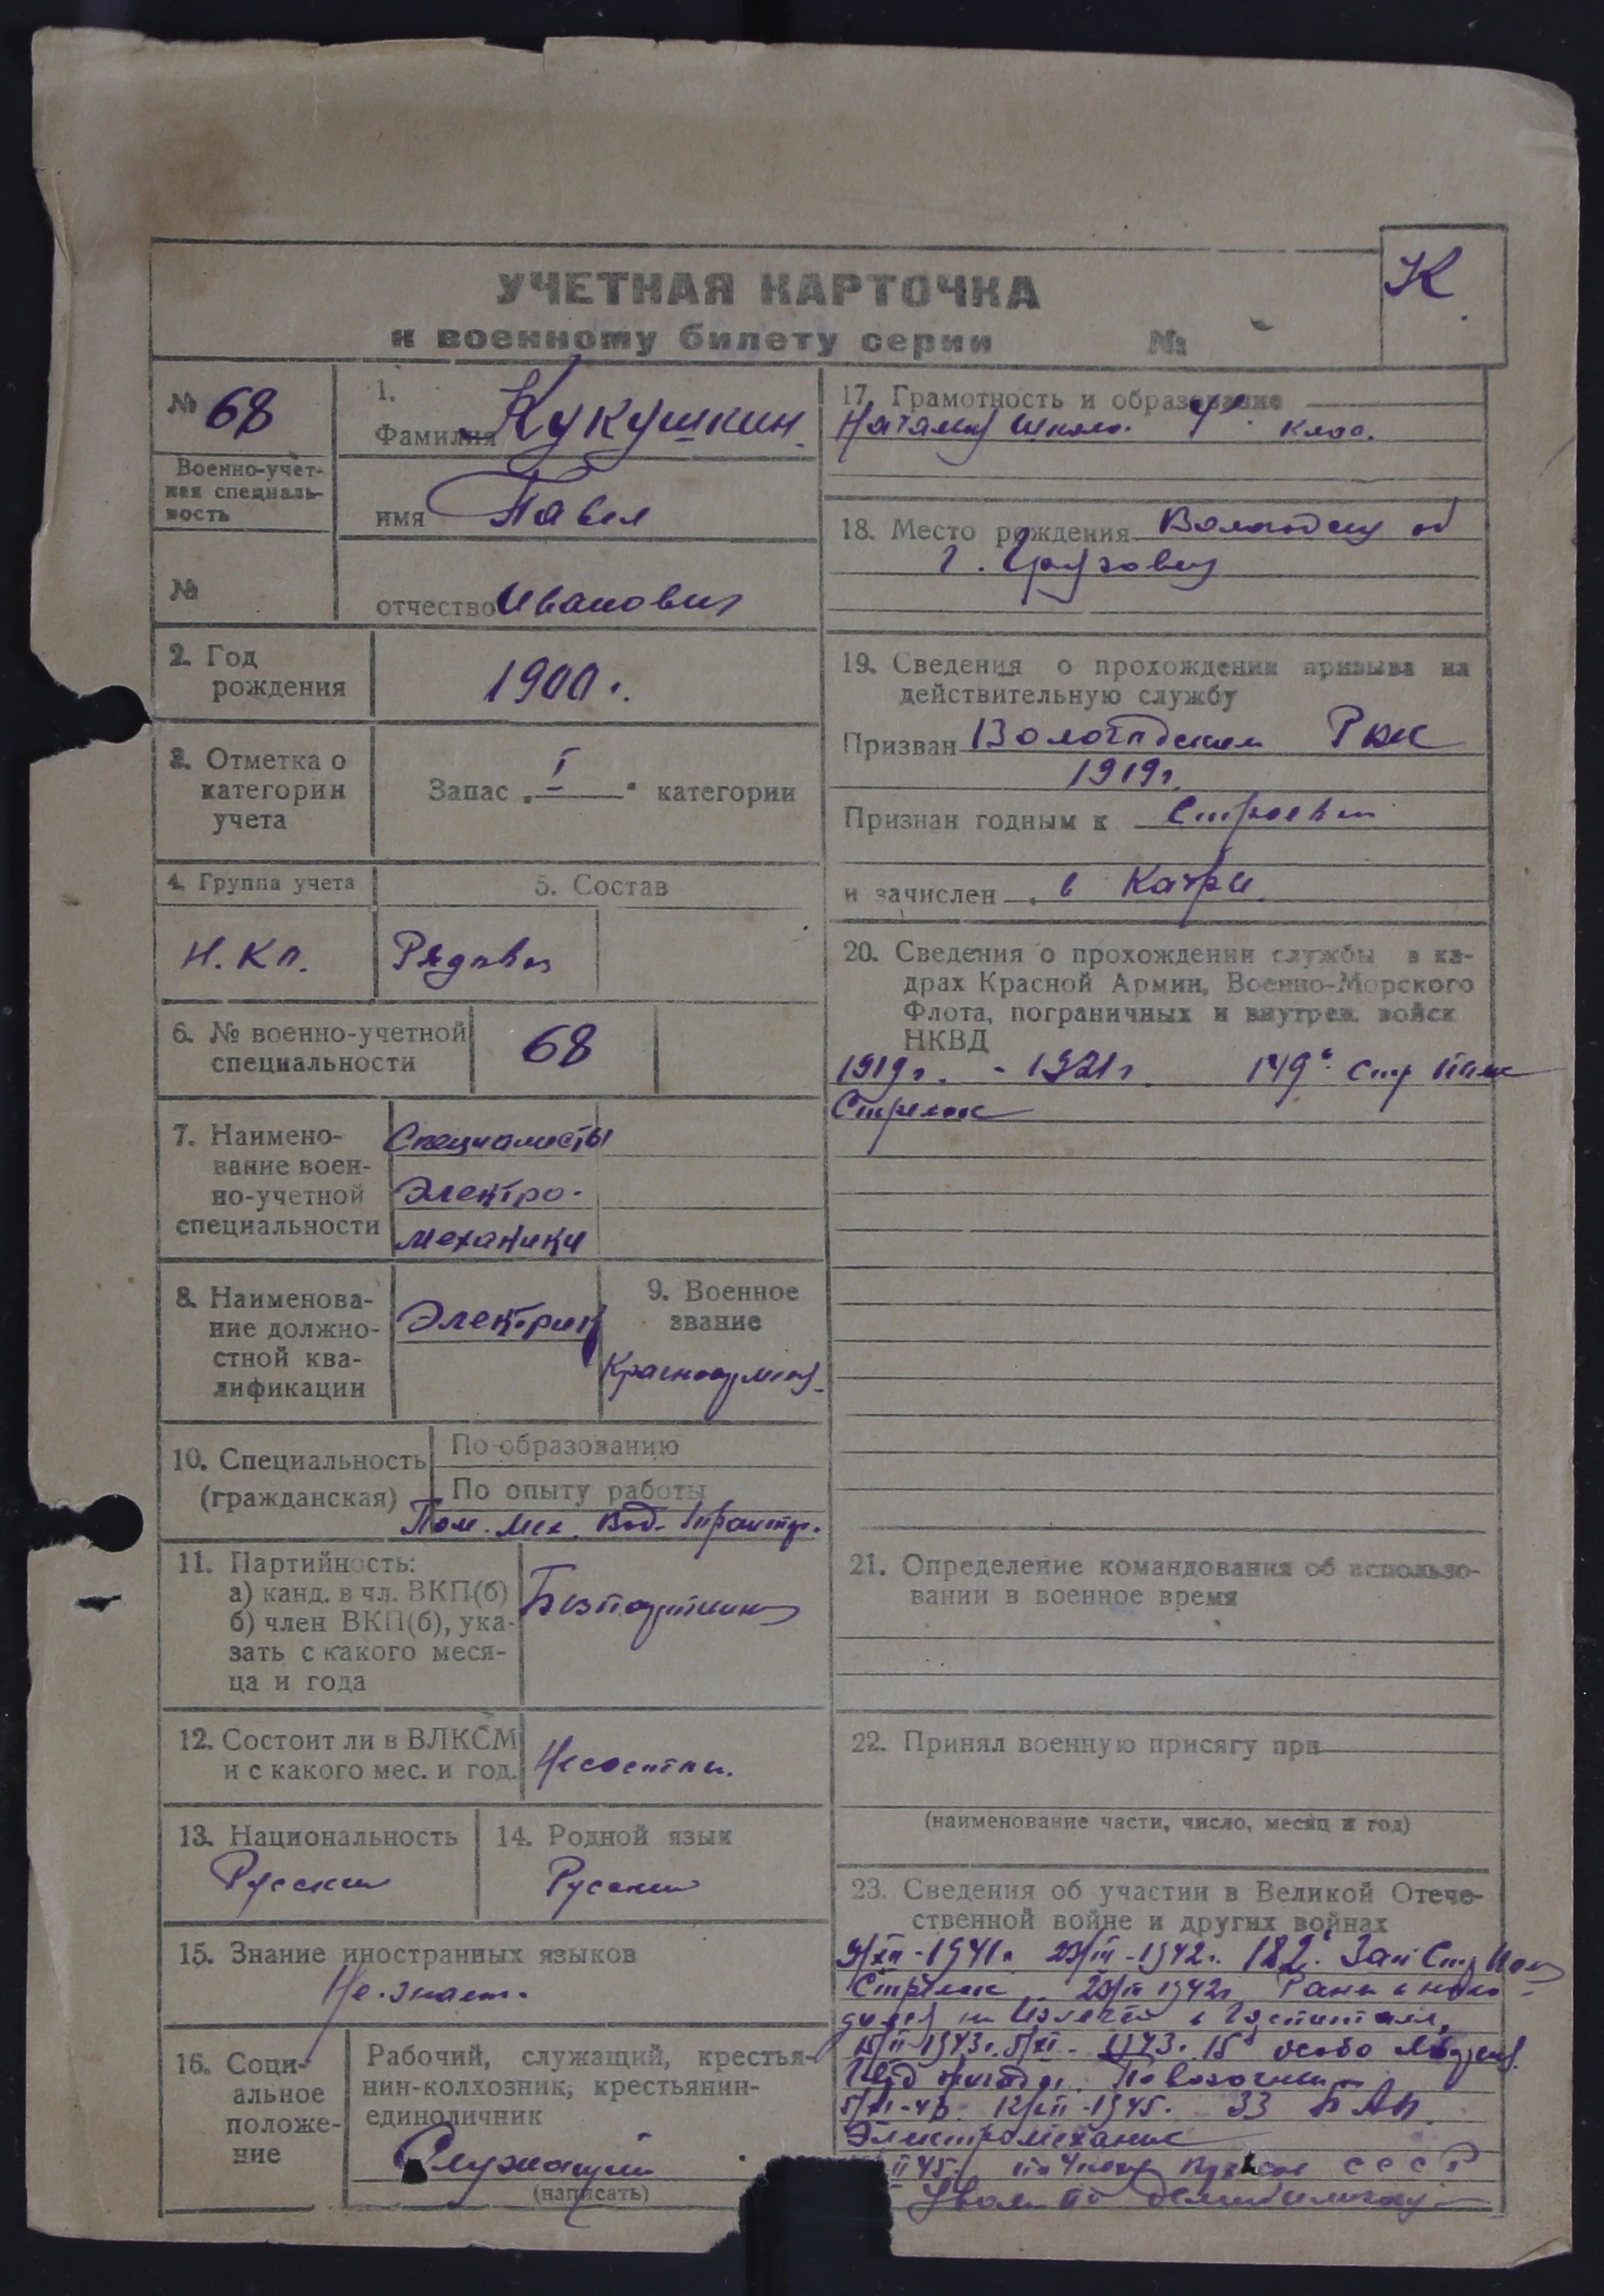 К
УЧЕТНАЯ КАРТОЧКА
к военному билету серии №
№ 68
Военно-учет-
ная специаль-
ность
№
1.
Фамилия Кукушкин
имя Павел
отчество Иванович
2. Год
рождения
1900 г.
3. Отметка о
категории
учета
Запас „ I " категории
4. Группа учета
5. Состав
Н.Кл.
Рядовой
6. № военно-учетной
специальности
68
7. Наимено-
вание воен-
но-учетной
специальности
Специалисты
Электро-
механики
8. Наименова-
ние должно-
стной ква-
лификации
Электрик
9. Военное
звание
Красноармеец
10. Специальность
(гражданская)
По образованию
По опыту работы
Пом. Мех. Вод.
11. Партийность:
а) канд. в чл. ВКП(б)
б) член ВКП(б), ука-
зать с какого меся-
ца и года
12. Состоит ли в ВЛКСМ
и с какого мес. и год.
13. Национальность
Русский
14. Родной язык
Русский
15. Знание иностранных языков
Не знает.
16. Соци-
альное
положе-
ние
Рабочий, служащий, крестья-
нин-колхозник, крестьянин-
единоличник
Служащий
(написать)
17. Грамотность и образование
класс.
18. Место рождения
г.
19. Сведения о прохождении призыва на
действительную службу
Призван РВК
1919 г.
Признан годным к
и зачислен в
20. Сведения о прохождении службы в ка-
драх Красной Армии, Военно-Морского
Флота, пограничных и внутрен. войск
НКВД
1919 г. - 1921 г. 149 Стр Полк
Стрелок
21. Определение командования об использо-
вании в военное время
22. Принял военную присягу при
(наименование части, число, месяц и год)
23. Сведения об участии в Великой Отече-
ственной войне и других войнах
9/XII-1941 г. 1942 г. 182 Зап Стр Полк
Стрелок 1942 г.
в Госпитале,
1943 г. 15 особо
1945 г. 33
Электромеханик
СССР